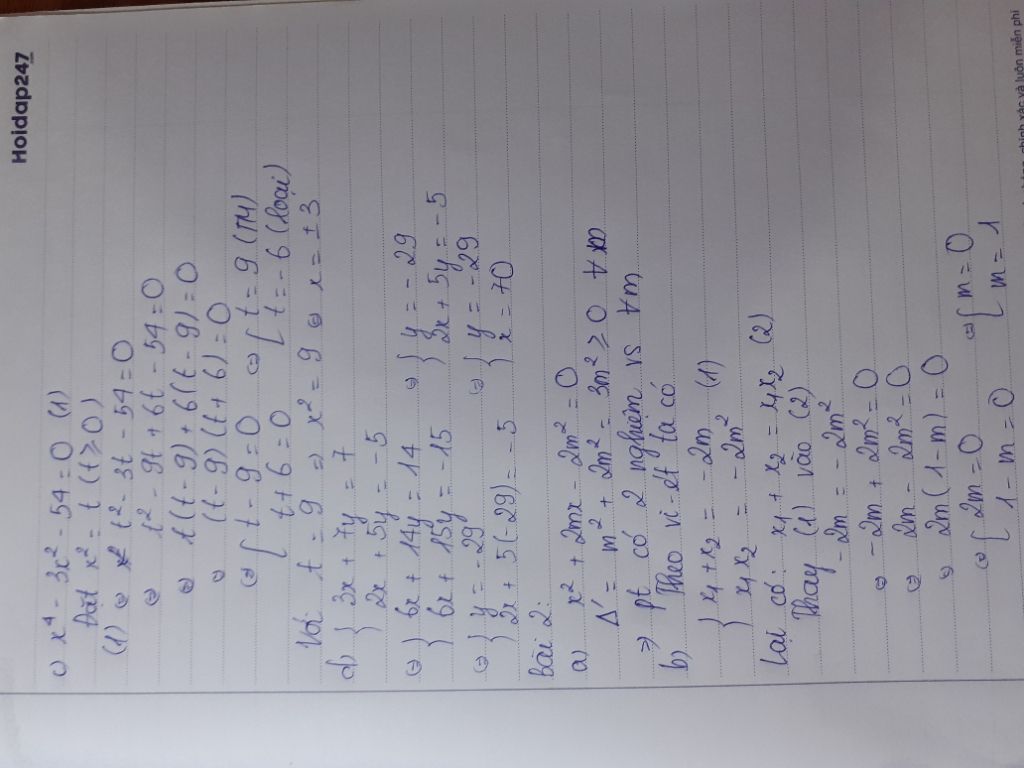 Hoidap247
c) x⁴ - 3x² - 54 = 0 (1)
Đặt x² = t (t ≥ 0)
(1) ⇔ t² - 3t - 54 = 0
⇔ t² - 9t + 6t - 54 = 0
⇔ t(t - 9) + 6(t - 9) = 0
⇔ (t - 9)(t + 6) = 0
⇔ [ t - 9 = 0 ⇔ [ t = 9 (TM)
t + 6 = 0 t = -6 (loại)
Với t = 9 ⇒ x² = 9 ⇔ x = ±3
d) { 3x + 7y = 7
2x + 5y = -5
⇔ { 6x + 14y = 14 ⇔ { y = -29
6x + 15y = -15 2x + 5y = -5
⇔ { y = -29 ⇔ { y = -29
2x + 5(-29) = -5 x = 70
Bài 2:
a) x² + 2mx - 2m² = 0
Δ' = m² + 2m² = 3m² ≥ 0 ∀m
⇒ pt có 2 nghiệm vs ∀m
b) Theo vi-ét ta có
{ x₁ + x₂ = -2m (1)
x₁x₂ = -2m²
Lại có: x₁ + x₂ = x₁x₂ (2)
Thay (1) vào (2)
-2m = -2m²
⇔ -2m + 2m² = 0
⇔ 2m - 2m² = 0
⇔ 2m(1 - m) = 0
⇔ [ 2m = 0 ⇔ [ m = 0
1 - m = 0 m = 1
chính xác và luôn miễn phí